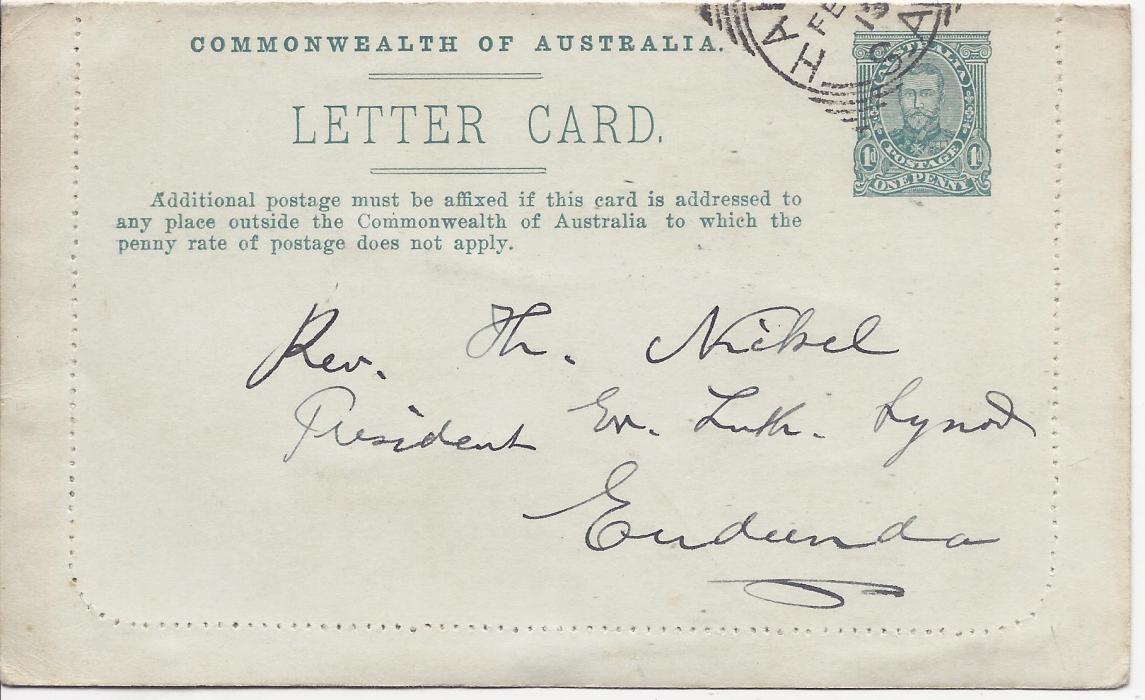 COMMONWEALTH OF AUSTRALIA.
HA FE 19 S.A
LETTER CARD.
AUSTRALIA
1d POSTAGE 1d
ONE PENNY
Additional postage must be affixed if this card is addressed to
any place outside the Commonwealth of Australia to which the
penny rate of postage does not apply.
Rev. Th. Nickel
President Ev. Luth. Synod
Eudunda